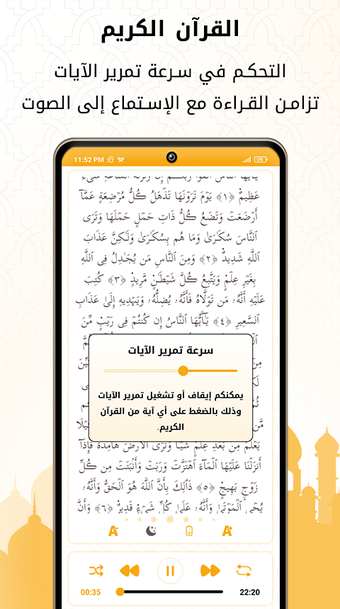 القرآن الكريم
التحكم في سرعة تمرير الآيات
تزامن القراءة مع الإستماع إلى الصوت
11:52 PM
عَظِيمٌ ﴿١﴾ يَوْمَ تَرَوْنَهَا تَذْهَلُ كُلُّ مُرْضِعَةٍ عَمَّآ
أَرْضَعَتْ وَتَضَعُ كُلُّ ذَاتِ حَمْلٍ حَمْلَهَا وَتَرَى
ٱلنَّاسَ سُكَٰرَىٰ وَمَا هُم بِسُكَٰرَىٰ وَلَٰكِنَّ عَذَابَ
ٱللَّهِ شَدِيدٌ ﴿٢﴾ وَمِنَ ٱلنَّاسِ مَن يُجَٰدِلُ فِى ٱللَّهِ
بِغَيْرِ عِلْمٍ وَيَتَّبِعُ كُلَّ شَيْطَٰنٍ مَّرِيدٍ ﴿٣﴾ كُتِبَ
عَلَيْهِ أَنَّهُۥ مَن تَوَلَّاهُ فَأَنَّهُۥ يُضِلُّهُۥ وَيَهْدِيهِ إِلَىٰ عَذَابِ
ٱلسَّعِيرِ ﴿٤﴾ يَٰٓأَيُّهَا ٱلنَّاسُ إِن كُنتُمْ فِى رَيْبٍ مِّنَ
سرعة تمرير الآيات
يمكنكم إيقاف أو تشغيل تمرير الآيات
وذلك بالضغط على أي آية من القرآن
الكريم.
يَعْلَمَ مِنۢ بَعْدِ عِلْمٍ شَيْـًٔا وَتَرَى ٱلْأَرْضَ هَامِدَةً فَإِذَآ
أَنزَلْنَا عَلَيْهَا ٱلْمَآءَ ٱهْتَزَّتْ وَرَبَتْ وَأَنۢبَتَتْ مِن كُلِّ
زَوْجٍۭ بَهِيجٍ ﴿٥﴾ ذَٰلِكَ بِأَنَّ ٱللَّهَ هُوَ ٱلْحَقُّ وَأَنَّهُۥ
يُحْىِ ٱلْمَوْتَىٰ وَأَنَّهُۥ عَلَىٰ كُلِّ شَىْءٍ قَدِيرٌ ﴿٦﴾ وَأَنَّ
00:35 22:20